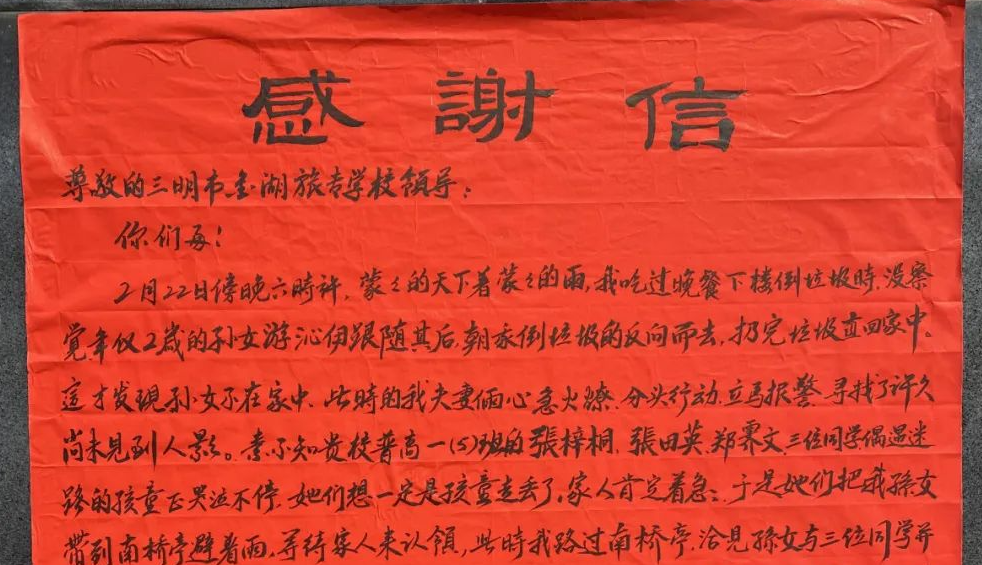 感謝信
尊敬的三明市金湖旅专学校領导：
你们好！
2月22日傍晚六時許，蒙々的天下着蒙々的雨，我吃过晚餐下楼倒垃圾時，没察
觉年仅2歳的孙女游沁伊跟随其后，朝我倒垃圾的反向而去，扔完垃圾直回家中。
這才发現孙女不在家中，此時的我夫妻俩心急火燎，分头行动，立马报警，寻找了许久
尚未見到人影。素不知贵校普高一(5)班的張梓桐，張田英，郑霁文三位同学偶遇迷
路的孩童正哭泣不停，她们想一定是孩童走丢了，家人肯定着急，于是她们把我孫女
帶到南桥亭避着雨，等待家人来认領，此時我路过南桥亭，洽見孫女与三位同学并